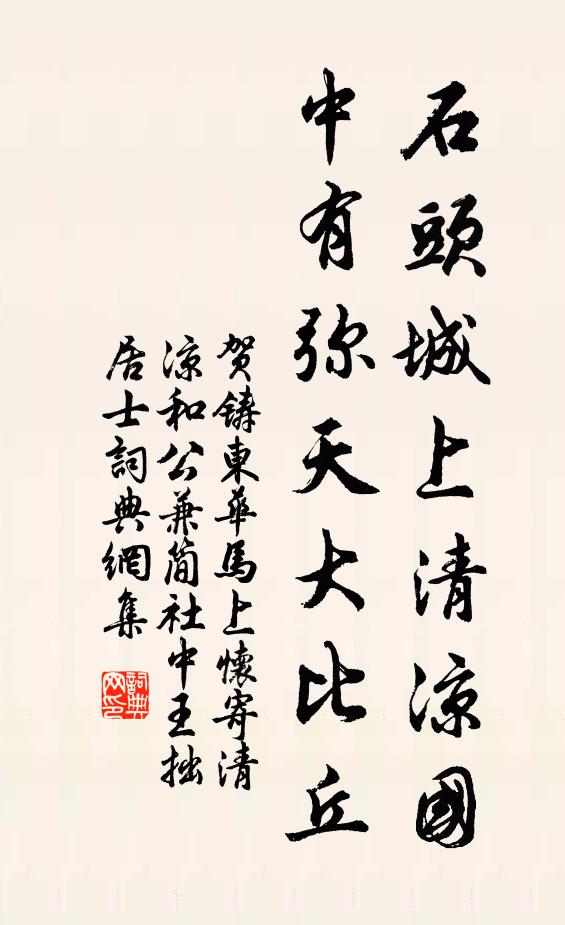 石頭城上清凉國
中有弥天大比丘
賀鑄東華馬上懷寄清
涼和公兼簡社中王拙
居士詞典網集
詞典
网印